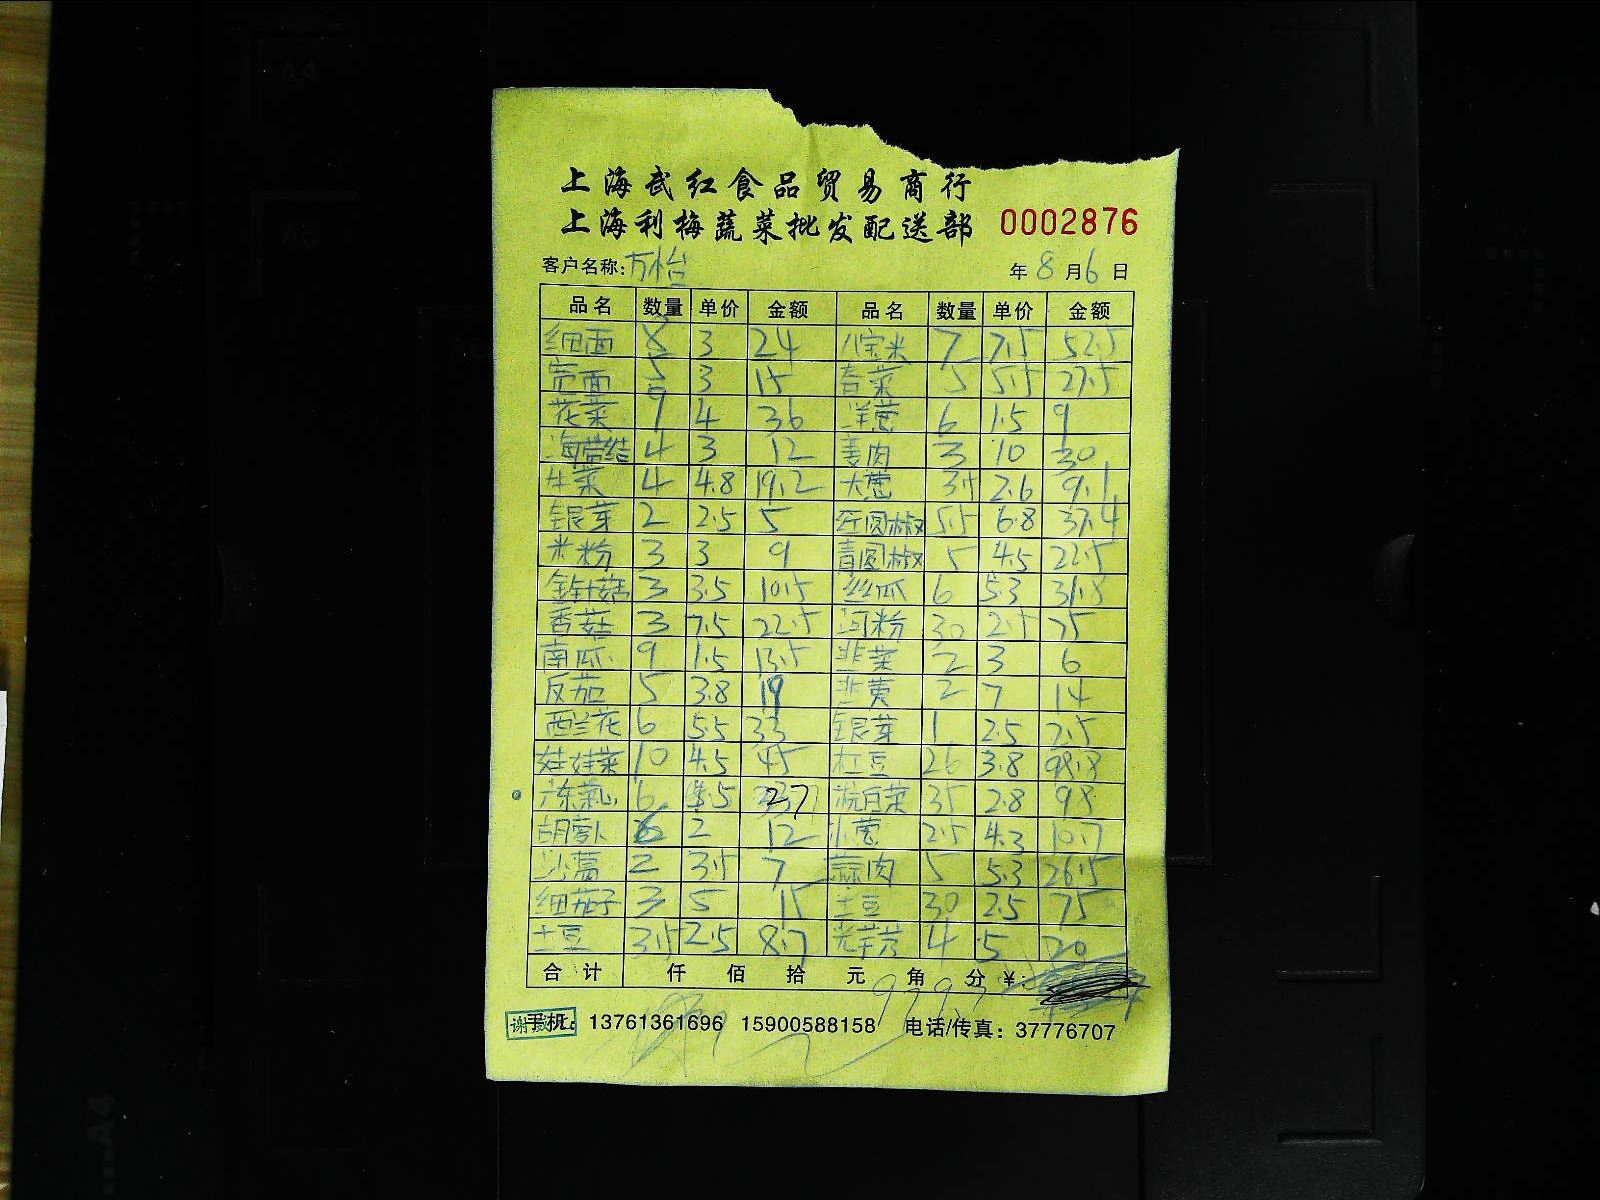 上海武红食品贸易商行
上海利梅蔬菜批发配送部 0002876
客户名称:万怡 年8月6日
品名 数量 单价 金额 品名 数量 单价 金额
细面 8 3 24 八宝米 7 7.5 52.5
宽面 5 3 15 青菜 5 5.5 27.5
花菜 9 4 36 洋葱 6 1.5 9
海带结 4 3 12 姜肉 3 10 30
生菜 4 4.8 19.2 大葱 3.5 2.6 9.1
银芽 2 2.5 5 红圆椒 5.5 6.8 37.4
米粉 3 3 9 青圆椒 5 4.5 22.5
金针菇 3 3.5 10.5 丝瓜 6 5.3 31.8
香菇 3 7.5 22.5 河粉 30 2.5 75
南瓜 9 1.5 13.5 韭菜 2 3 6
反茄 5 3.8 19 韭黄 2 7 14
西兰花 6 5.5 33 银芽 1 2.5 2.5
娃娃菜 10 4.5 45 杠豆 26 3.8 98.8
6 4.5 27 杭白菜 35 2.8 98
胡萝卜 6 2 12 小葱 2.5 4.3 10.7
沙葛 2 3.5 7 蒜肉 5 5.3 26.5
细茄子 3 5 15 土豆 30 2.5 75
土豆 3.5 2.5 8.7 光芋艿 4 5 20
合计 仟 佰 拾 元 角 分 ¥:
手机: 13761361696 15900588158 电话/传真: 37776707